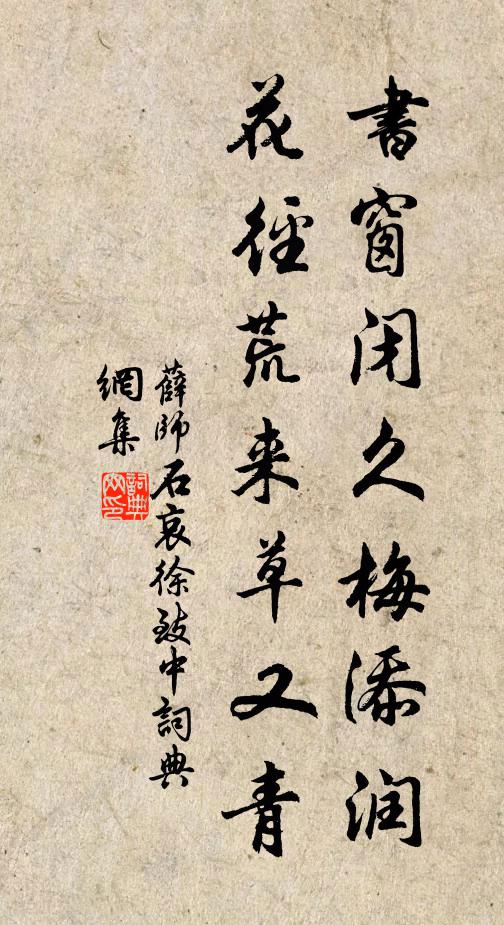 書窗闭久梅添润
花徑荒来草又青
薛師石哀徐致中詞典
網集
詞典網印